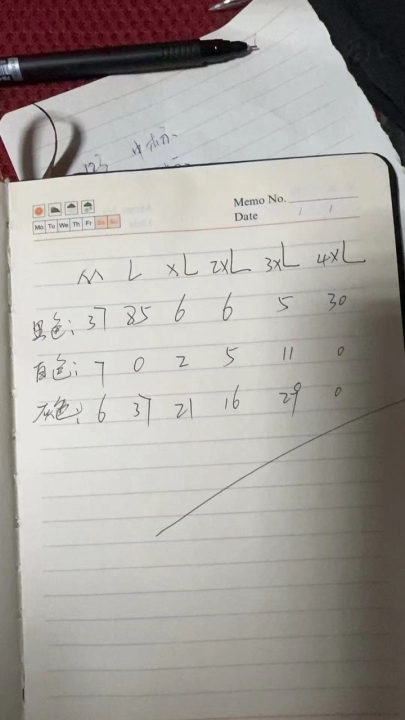 中标
Memo No.
Mo Tu We Th Fr Sa Su
Date / /
M L XL 2XL 3XL 4XL
黑色: 37 85 6 6 5 30
白色: 7 0 2 5 11 0
灰色: 6 37 21 16 29 0